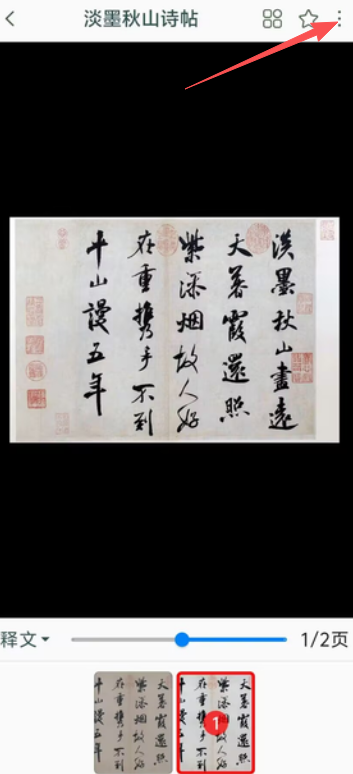 淡墨秋山诗帖
淡墨秋山畫遠
天暮霞還照
紫添烟故人好
在重攜手不到
平山謾五年
释文
1/2页
1